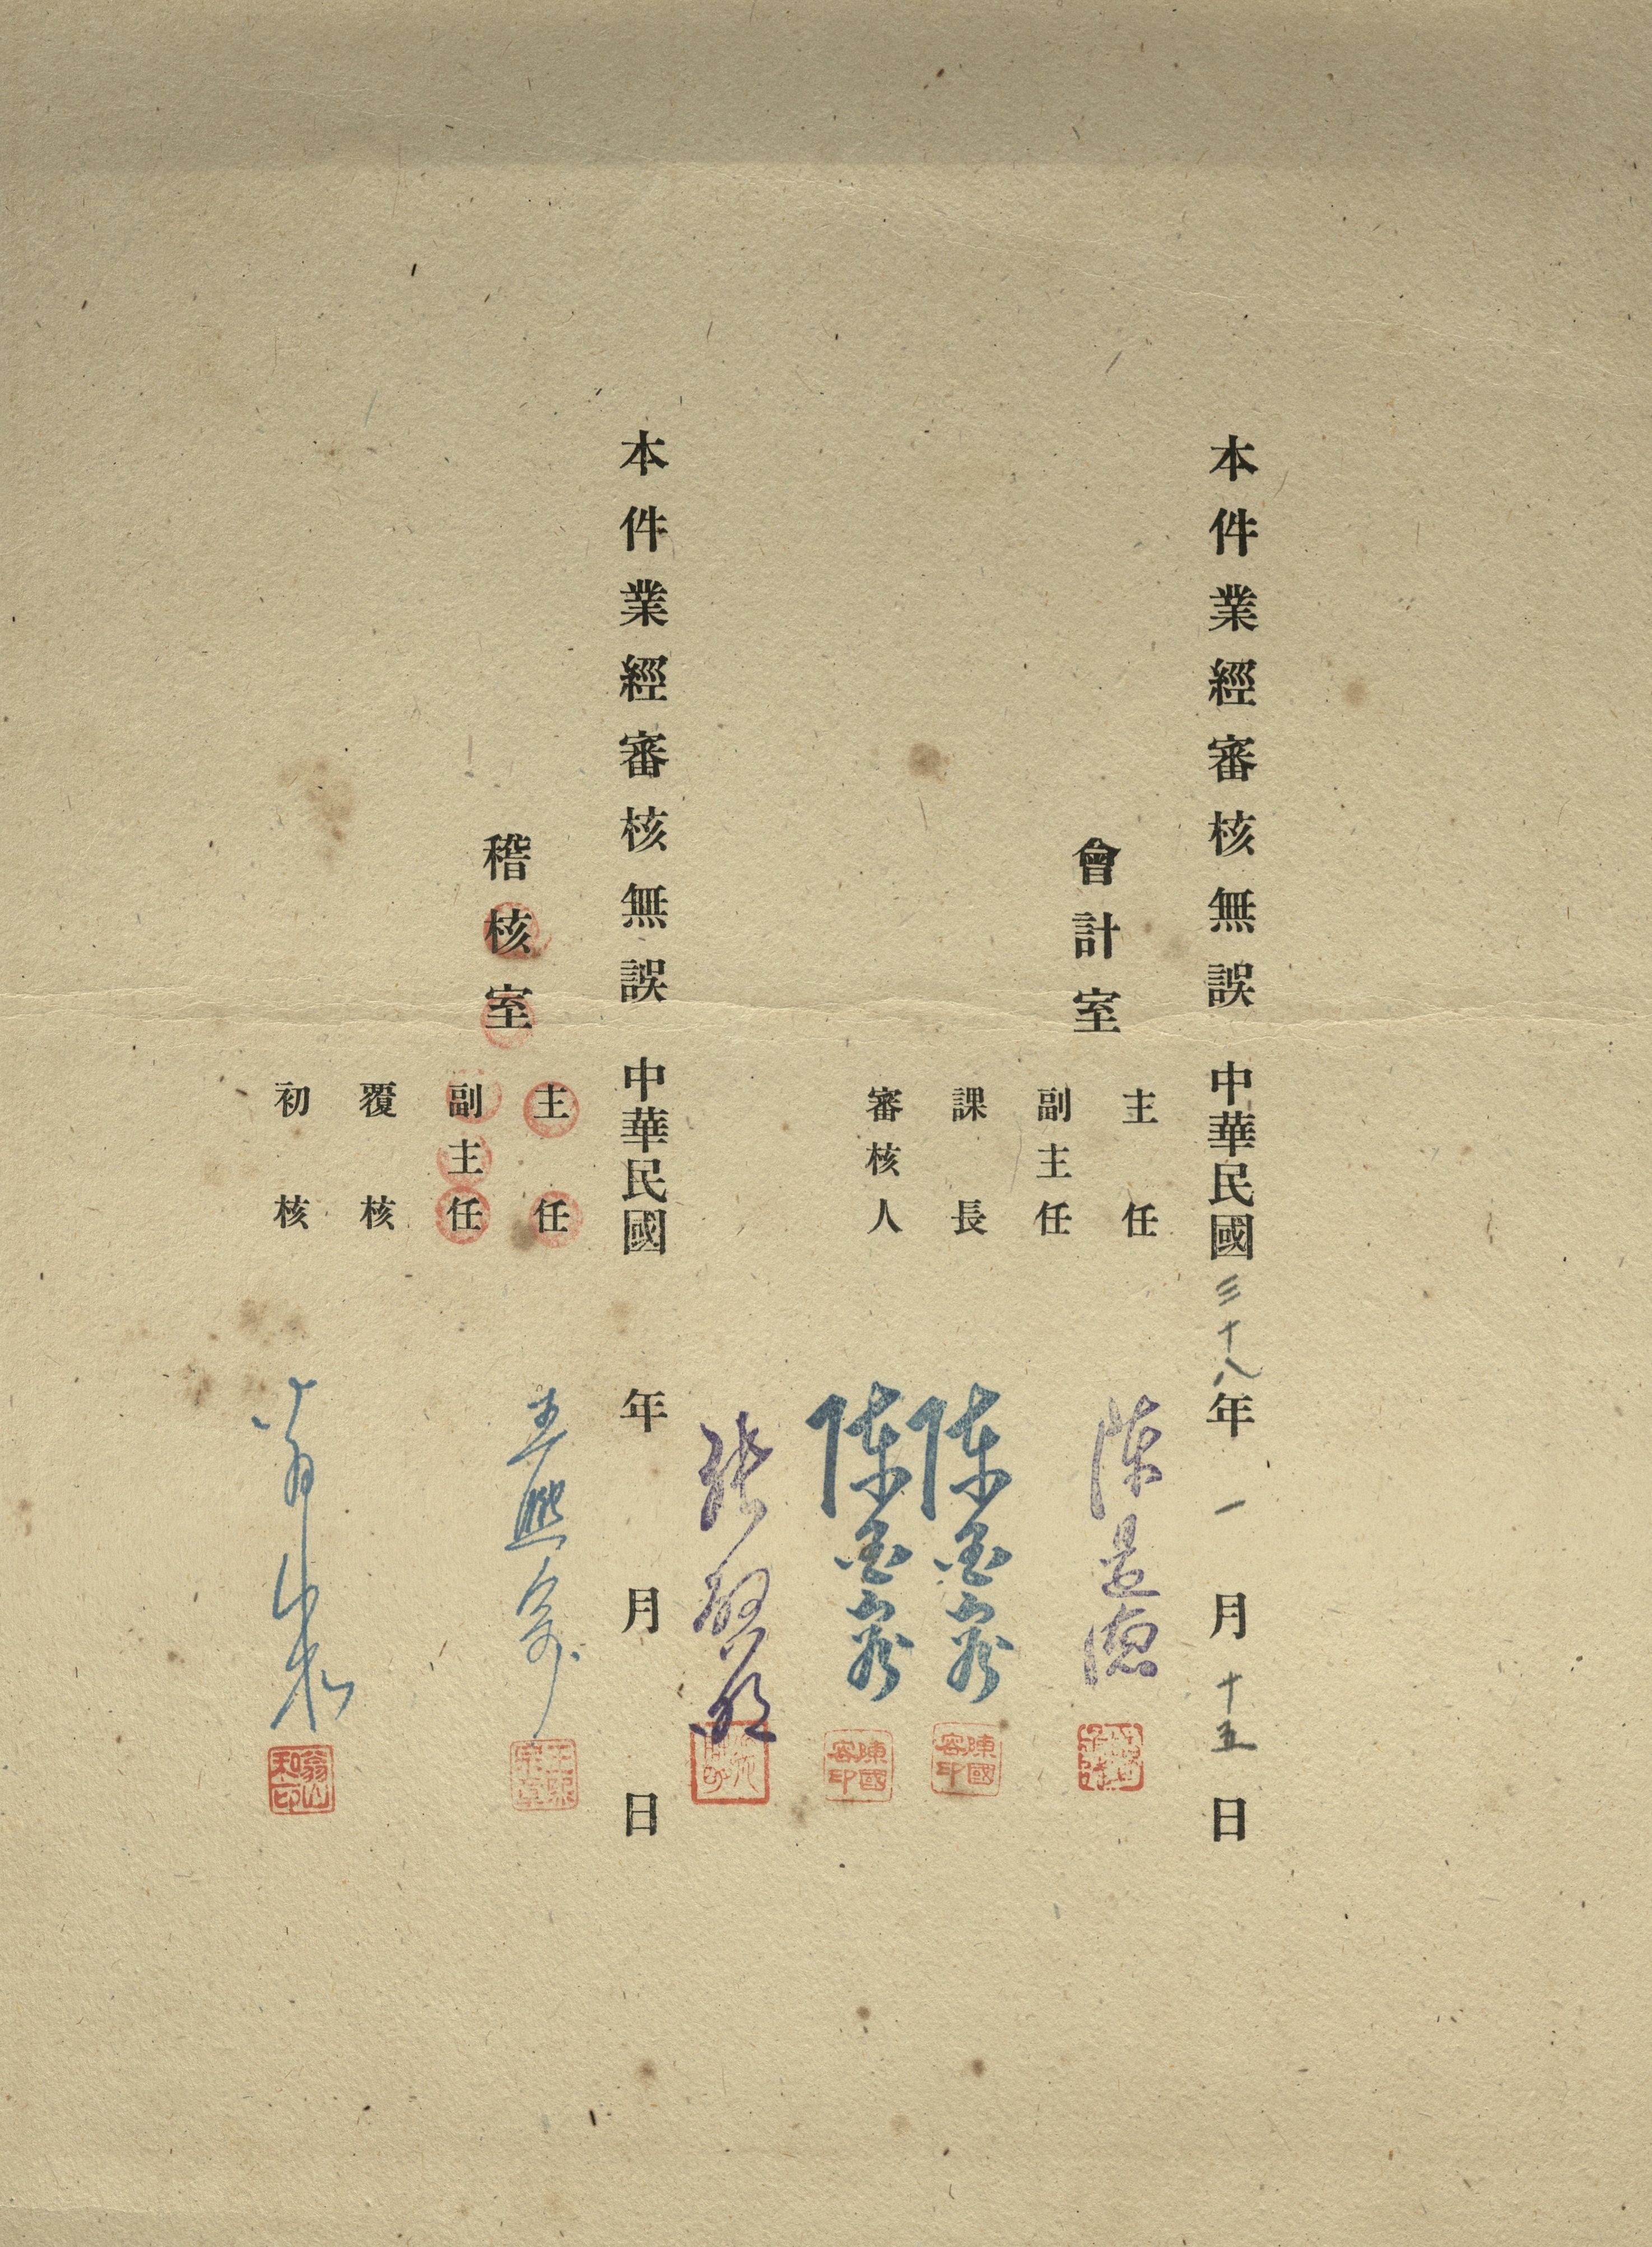 本件業經審核無誤 中華民國三十八年一月十五日
會計室
主任 陳
副主任
課長 陳國容
陳國容印
審核人 陳國容
陳國容印
張
本件業經審核無誤 中華民國 年 月 日
稽核室
主任 王熙宗
王熙宗章
副主任
覆核
初核 翁
翁山和印